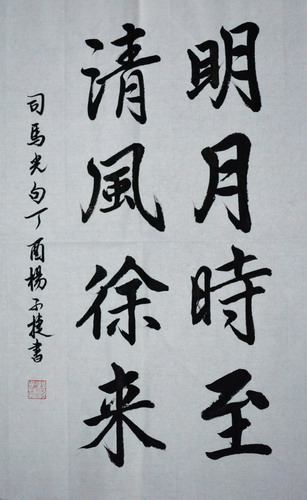 明月時至
清風徐来
司馬光句丁酉楊小捷書